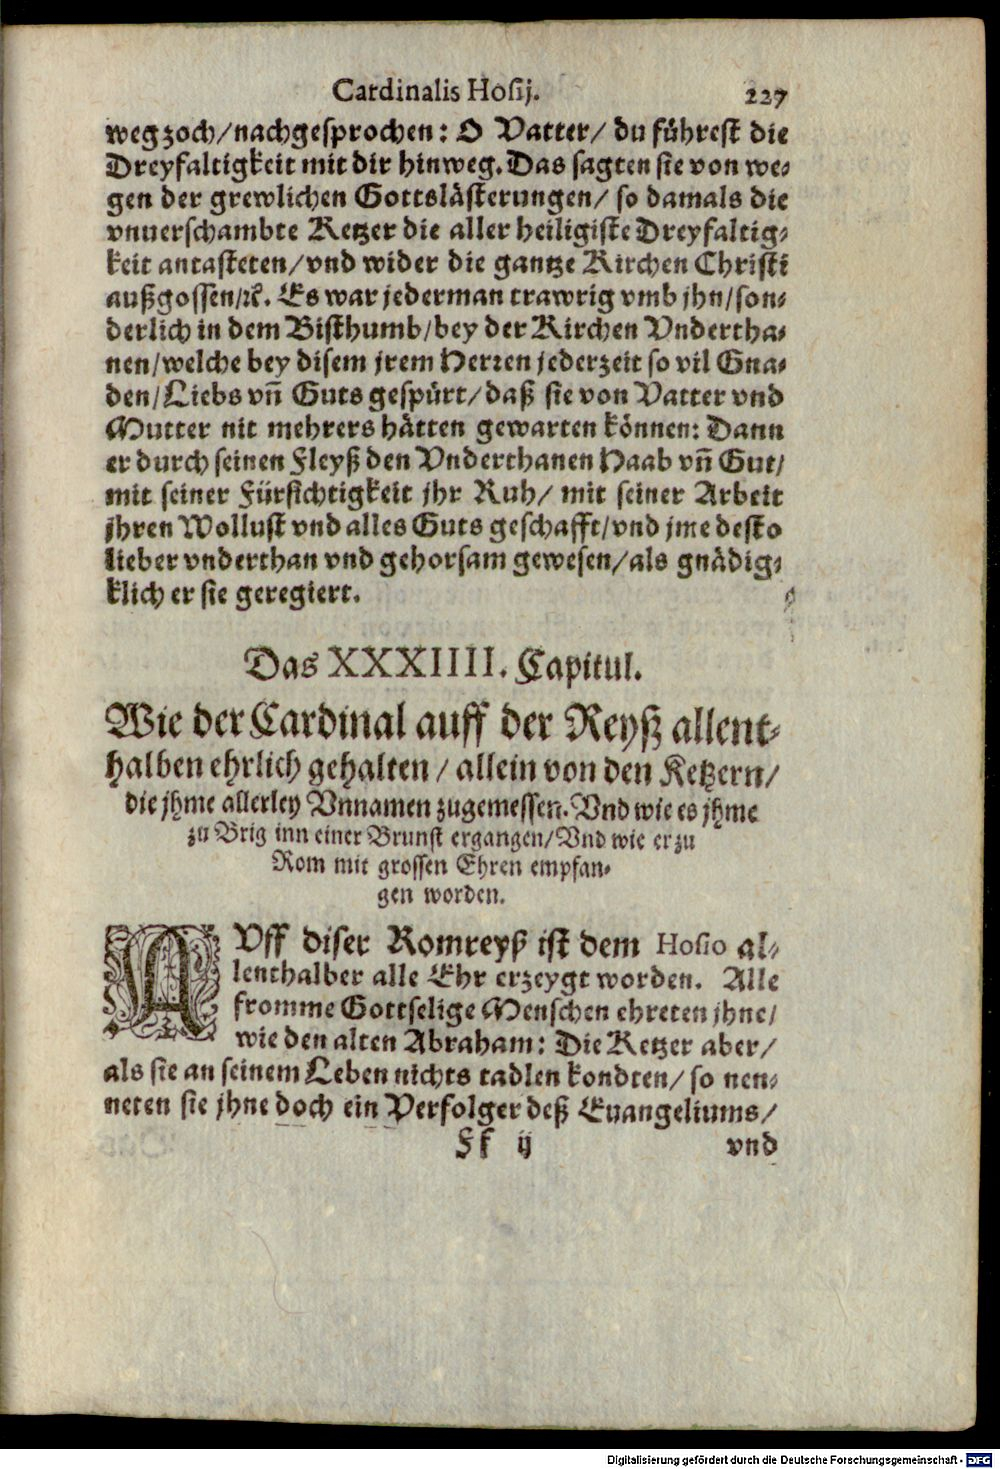 Cardinalis Hosij. 227
weg zoch/nachgesprochen: O Vatter/ du führest die
Dreyfaltigkeit mit dir hinweg. Das sagten sie von we⸗
gen der grewlichen Gottslästerungen/ so damals die
vnuerschambte Ketzer die aller heiligiste Dreyfaltig⸗
keit antasteten/vnd wider die gantze Kirchen Christi
außgossen/ꝛc. Es war jederman trawrig vmb jhn/son⸗
derlich in dem Bisthumb/bey der Kirchen Vndertha⸗
nen/welche bey disem jrem Herren jederzeit so vil Gna⸗
den/Liebs vñ Guts gespürt/daß sie von Vatter vnd
Mutter nit mehrers hätten gewarten können: Dann
er durch seinen Fleyß den Vnderthanen Haab vñ Gut/
mit seiner Fürsichtigkeit jhr Ruh/ mit seiner Arbeit
jhren Wollust vnd alles Guts geschafft/vnd jme desto
lieber vnderthan vnd gehorsam gewesen/als gnädig⸗
klich er sie geregiert.
Das XXXIIII. Capitul.
Wie der Cardinal auff der Reyß allent⸗
halben ehrlich gehalten/ allein von den Ketzern/
die jhme allerley Vnnamen zugemessen. Vnd wie es jhme
zu Brig inn einer Brunst ergangen/Vnd wie er zu
Rom mit grossen Ehren empfan⸗
gen worden.
AVff diser Romreyß ist dem Hosio al⸗
lenthalber alle Ehr erzeygt worden. Alle
fromme Gottselige Menschen ehreten jhne/
wie den alten Abraham: Die Ketzer aber/
als sie an seinem Leben nichts tadlen kondten/ so nen⸗
neten sie jhne doch ein Verfolger deß Euangeliums/
Ff ij vnd
Digitalisierung gefördert durch die Deutsche Forschungsgemeinschaft - DFG